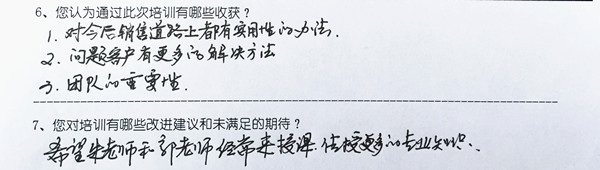 6、您认为通过此次培训有哪些收获？
1. 对今后销售道路上都有实用性的办法.
2. 问题客户有更多的解决方法
3. 团队的重要性.
7、您对培训有哪些改进建议和未满足的期待？
希望朱老师和郭老师经常来授课.传授更多的专业知识.